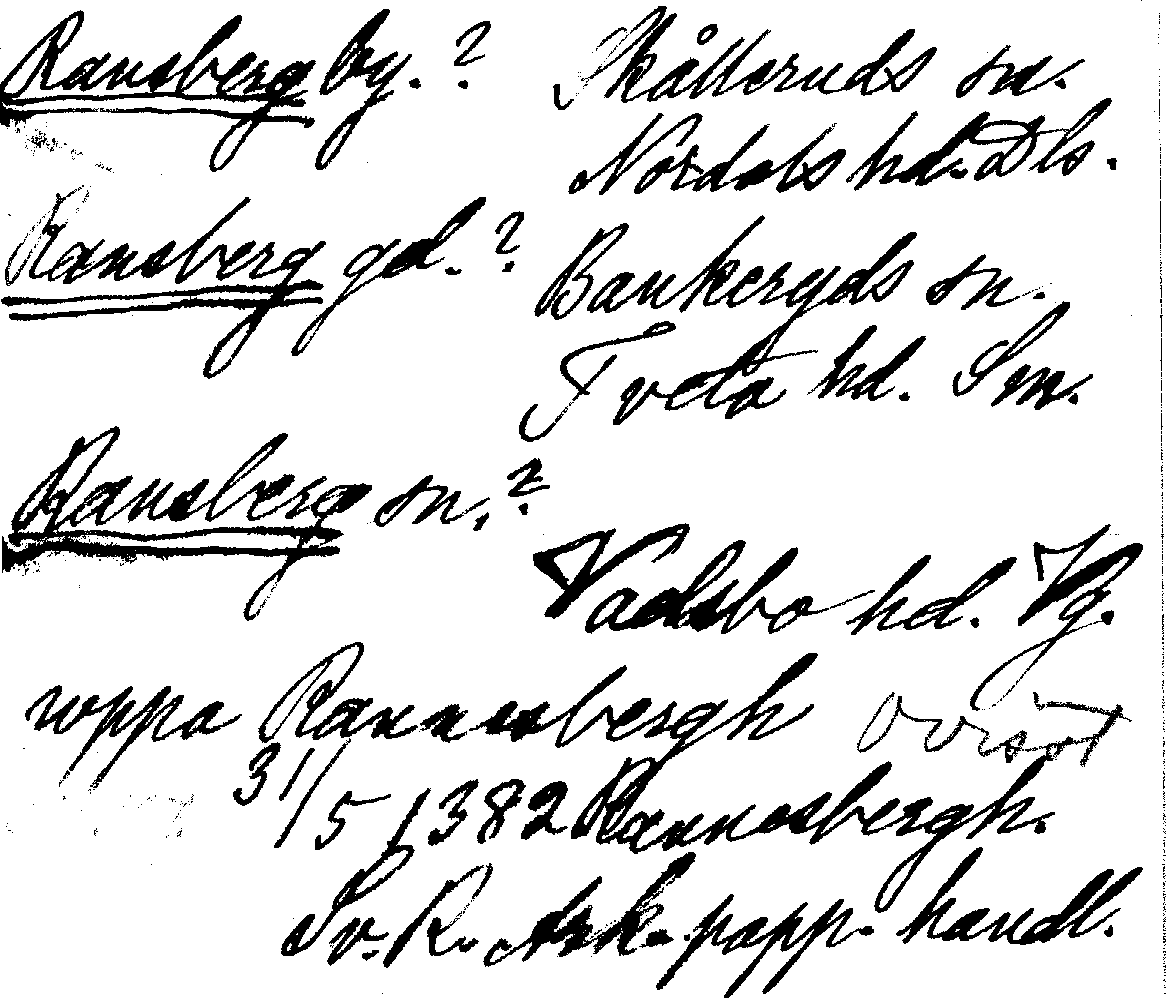 Ransberg by. ? Skålleruds sn.
Nordals hd. Dls.
Ransberg gd. ? Bankeryds sn.
Tveta hd. Sm.
Ransberg sn. ?
Vadsbo hd. Vg.
uppa Rannesbergh ovisst
31/5 1382 Rannesbergh.
Sv. R. Ark. papp. handl.